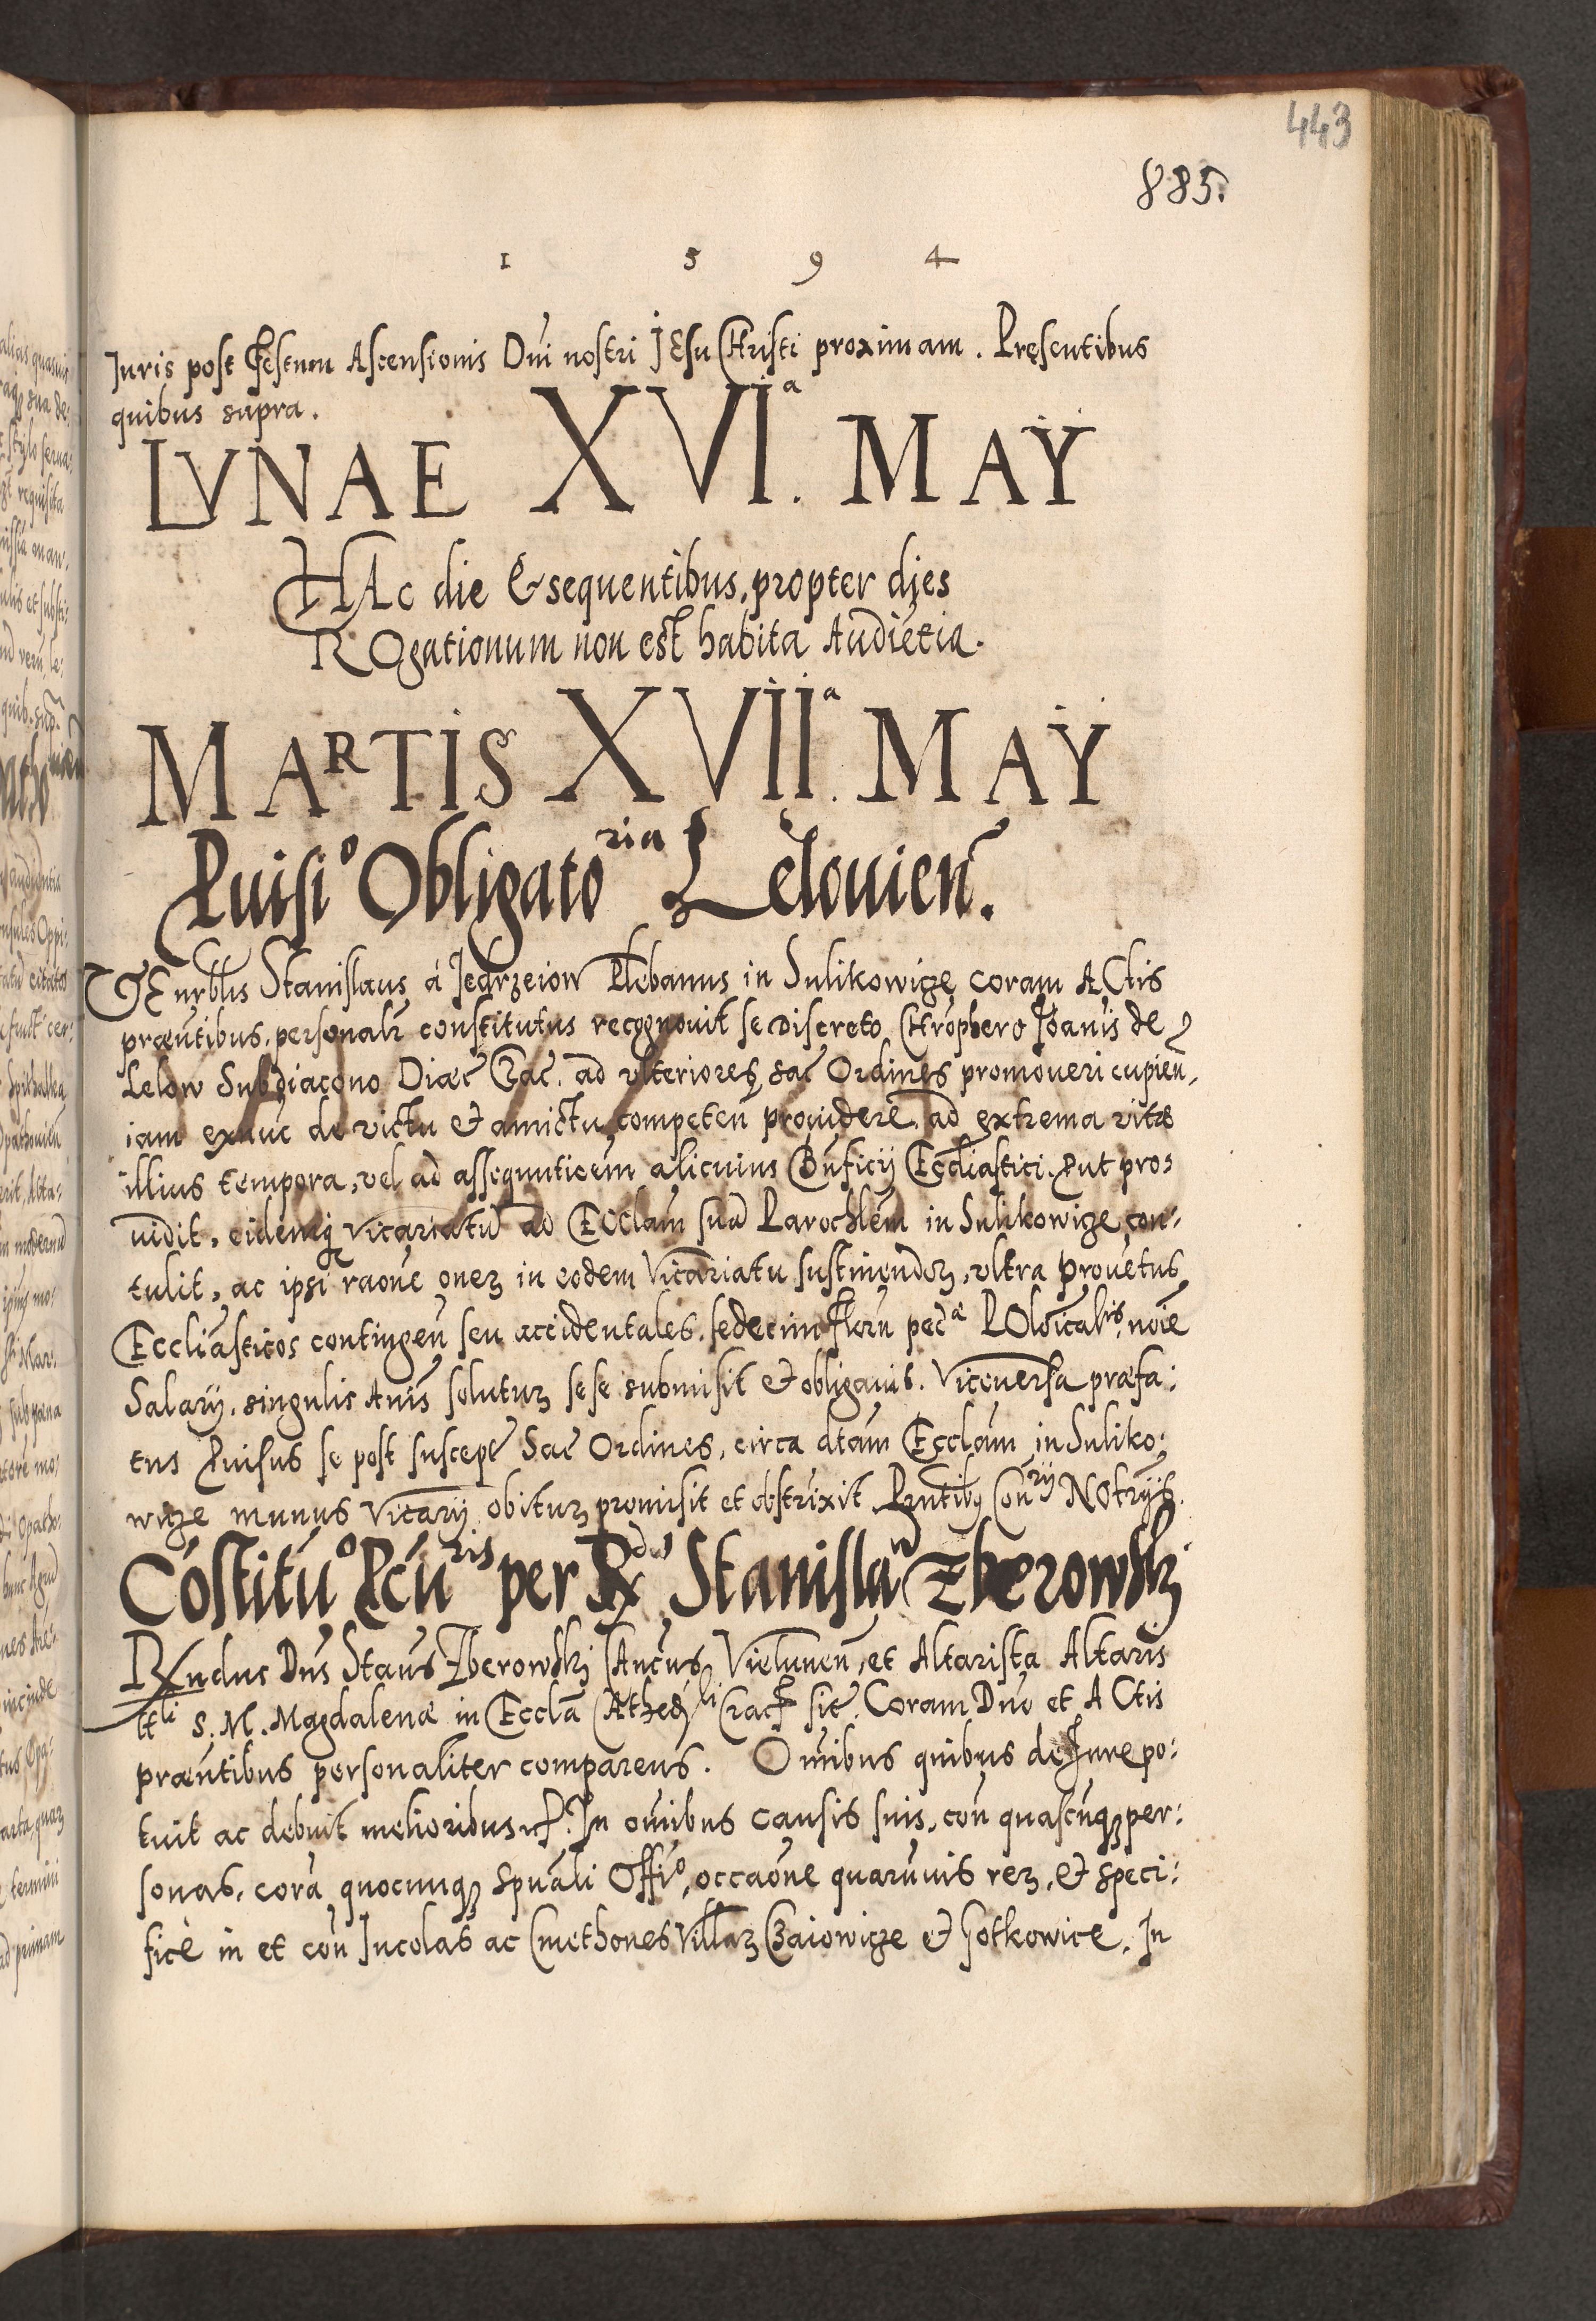 443
885.
1 5 9 4
Iuris post Festum Ascensionis Dnĩ nostri JEsu CHristi proximam. Pręsentibus
quibus supra.
LVNAE XVIª. MAŸ
HAc die & sequentibus, propter dies
ROgationum non est habita Audiẽtia.
MARTIS XVIIª. MAŸ
Puisiº Obligatoria Lelouieñ.
VEnrblis Stanislaus à Jedrzeiow Plebanus in Sulikowicze coram ACtis
præñtibus, personalr constitutus recognouit se Discreto CHrophero Joañis de
Lelow Subdiacono Diæc Crac. ad vlteriores sac Ordines promoueri cupieñ,
iam exnuc de victu et amictu competeñ prouidere, ad extrema vitæ
illius tempora, vel ad assequuticem alicuius Bñficij Eccliastici. Put pro:
uidit, eidemq Vicariatũ ad Ecclam suã Parochlem in Sulikowicze con:
tulit, ac ipsi raone onez in eodem Vicariatu sustinendoz, vltra prouẽtus
Eccliasticos contingeñ seu accidentales, sedecim floru pecª POlõicalis, noie
Salarij, singulis Anis solutuz sese submisit et obligauit. Viceuersa præfa:
tus Puisus se post suscept Sac Ordines, circa dtam Ecclam in Suliko:
wicze munus Vicarij obituz promisit et obstrixit Pntibq Conrij NOtrijs.
Cóstitũº Pcũris per Rdũ Stanislaũ Zberowskj
Rndus Dñs Staus Zberowskj CAncus Vieluneñ, et Altarista Altaris
ttli S. M. Magdalenæ in Eccla CAthedli Crac sit. Coram Dño et ACtis
præñtibus personaliter comparens. Omibus quibus de Jure po:
tuit ac debuit melioribus rc. In omibus causis suis, con quascuqz per:
sonas, corã quocunqz spuali Offiº, occaone quaruuis rez, et speci:
ficè in et con Incolas ac Cmethones Villaz Czaiowicze et Gotkowice. In